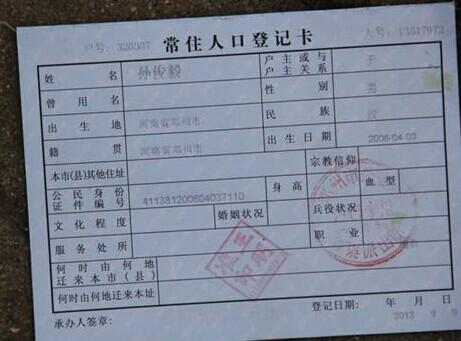 户号: 320307 常住人口登记卡
姓名 孙俊毅 户主或与户主关系 子
曾用名 性别 男
出生地 河南省邓州市 民族 汉
籍贯 河南省邓州市 出生日期 2006-04-03
本市(县)其他住址 宗教信仰
公民身份证件编号 411381200604037110 身高 血型
文化程度 婚姻状况 兵役状况
服务处所 职业
何时由何地迁来本市(县)
何时由何地迁来本址
承办人签章: 登记日期: 年 月 日
2013 9 9